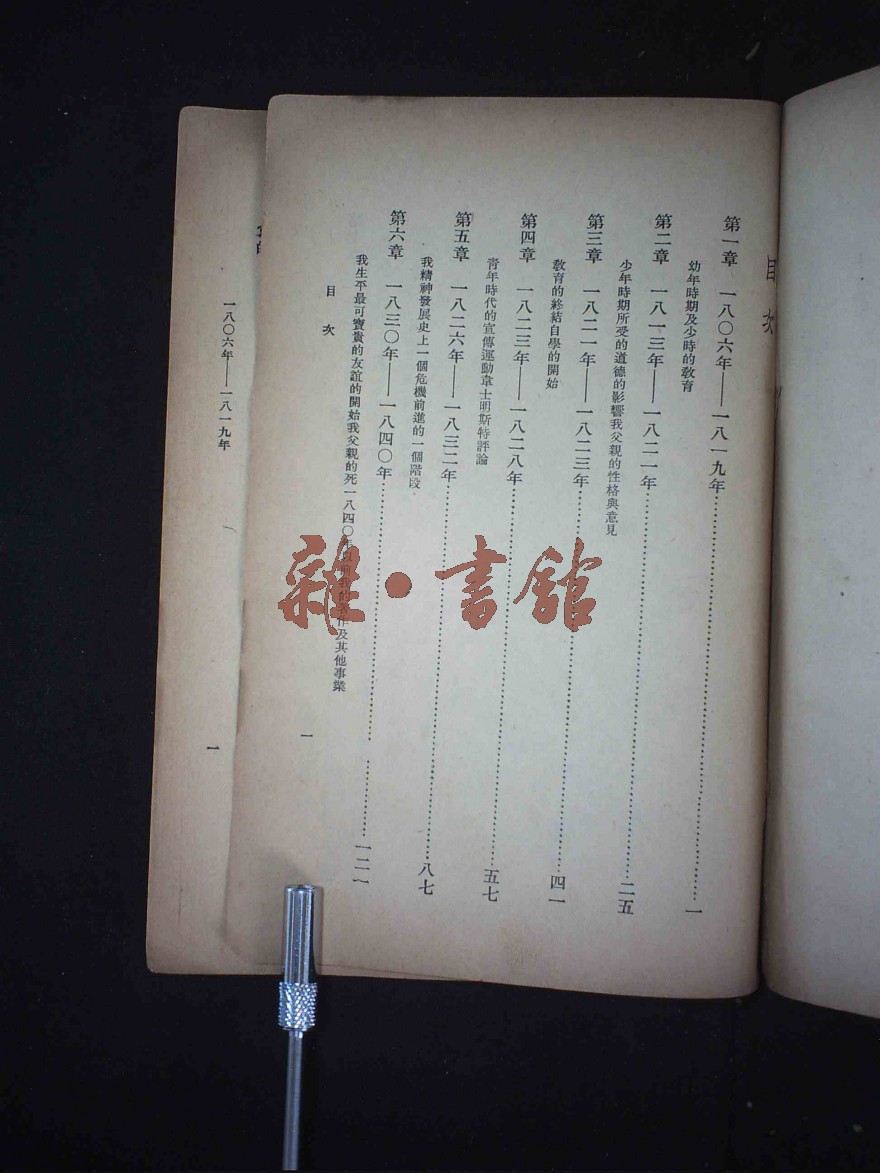 目次
第一章 一八〇六年——一八一九年……一
幼年時期及少時的教育
第二章 一八一三年——一八二一年……二五
少年時期所受的道德的影響我父親的性格與意見
第三章 一八二一年——一八二三年……四一
教育的終結自學的開始
第四章 一八二三年——一八二八年……五七
青年時代的宣傳運動韋士明斯特評論
第五章 一八二六年——一八三二年……八七
我精神發展史上一個危機前進的一個階段
第六章 一八三〇年——一八四〇年……一二一
我生平最可寶貴的友誼的開始我父親的死一八四〇年以前我的著作及其他事業
目次
一
一八〇六年——一八一九年
一
雜·書館